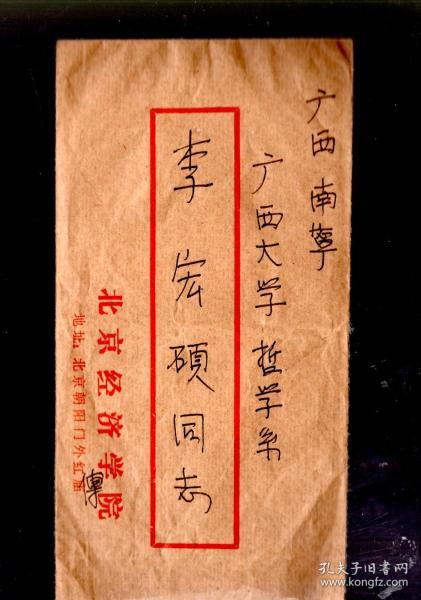 广西南寧
广西大学哲学系
李宏硕同志
北京经济学院
地址：北京朝阳门外红庙
傅
孔夫子旧书网
www.kongfz.com